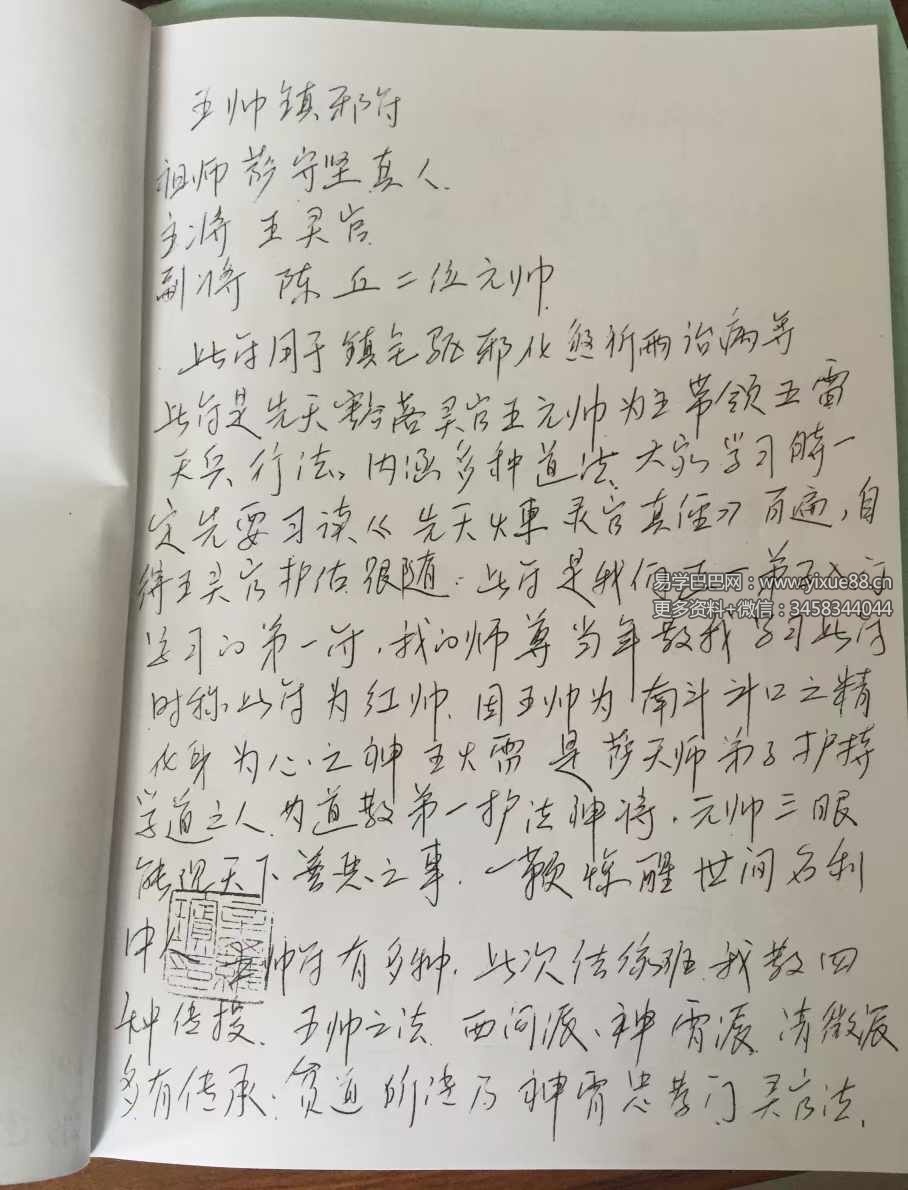 王帅镇邪符
祖师萨守坚真人.
主将 王灵官.
副将 陈 丘二位元帅.
此符用于镇宅驱邪化煞祈雨治病等
此符是先天豁落灵官王元帅为主带领五雷
天兵行法。内涵多种道法.大家学习时一
定先要习读《先天火車灵官真经》百遍，自
得王灵官护佑跟随.此符是我们 一弟子入
易学巴巴网：www.yixue88.cn
更多资料+微信：3458344044
学习的第一符，我的师尊当年教我学习此符
时称此符为红帅.因王帅为南斗斗口之精
化身为心之神主火雷是萨天师弟子护持
学道之人.为道教第一护法神将.元帅三眼
能观天下善恶之事.一鞭惊醒世间名利
中人 王帅符有多种.此次传 班.我教四
种传授.王帅之法.西河派、神霄派.清微派
多有传承.贫道所法乃神霄忠孝门灵官法.